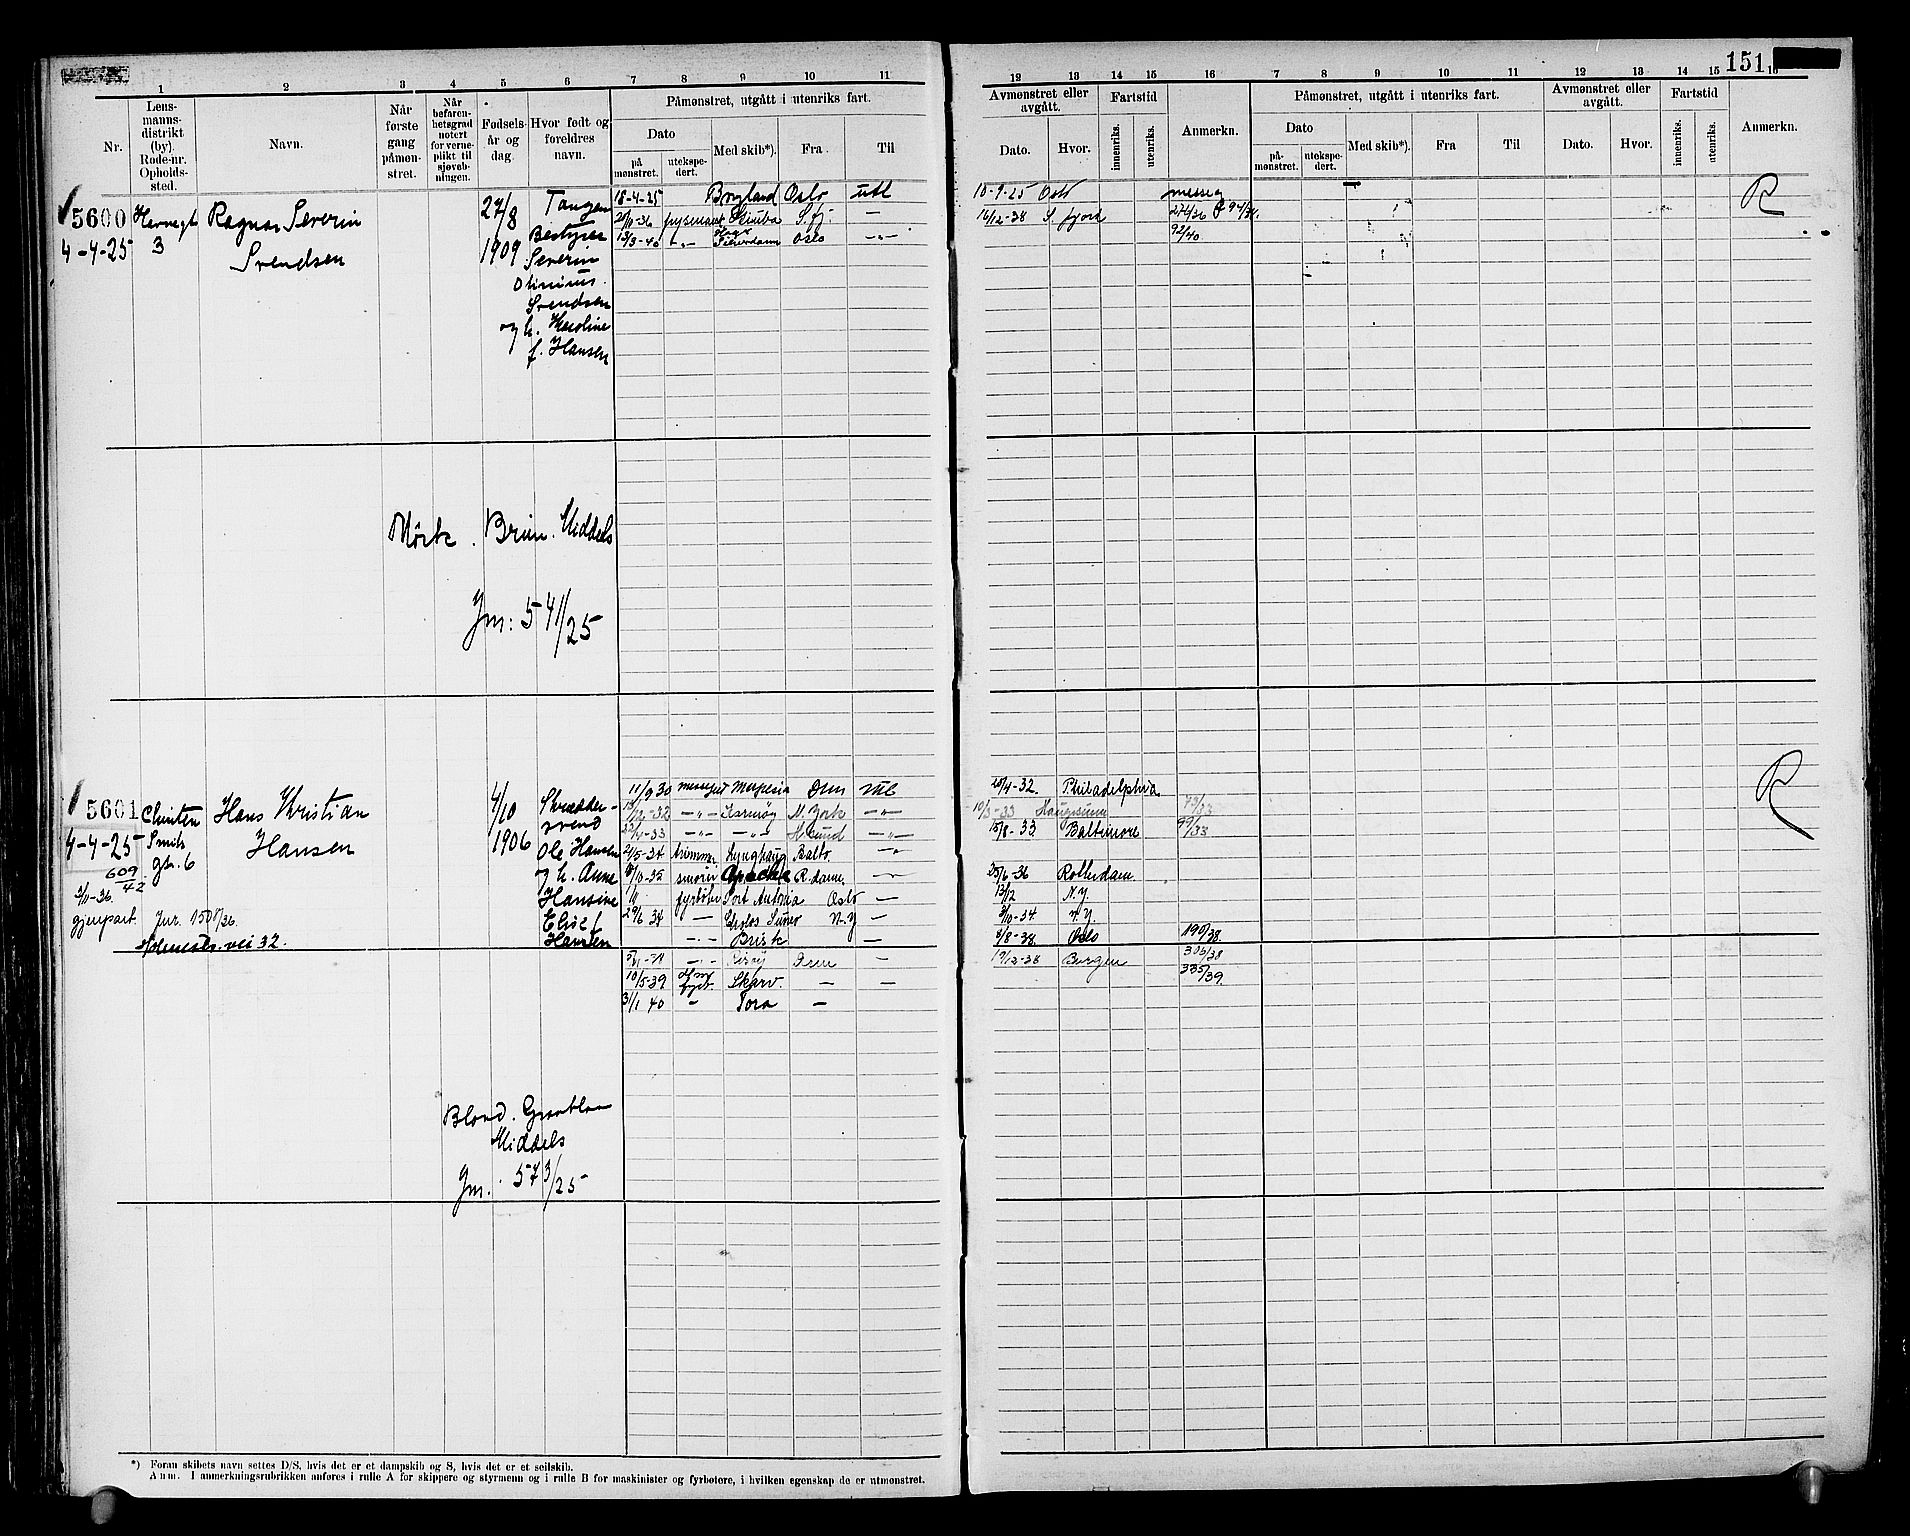 151
1 2 3 4 5 6 7 8 9 10 11
12 13 14 15 16 7 8 9 10 11 12 13 14 15 16
Nr.
Lens-
manns-
distrikt
(by).
Rode-nr.
Opholds-
sted.
Navn.
Når
første
gang
påmøn-
stret.
Når
befaren-
hetsgrad
notert
for verne-
plikt til
sjøveb-
ningen.
Fødsels-
år og
dag.
Hvor født og
foreldres
navn.
Påmønstret, utgått i utenriks fart.
Dato
på
mønstret.
utekspe-
dert.
Med skib*).
Fra
Til
Avmønstret eller
avgått.
Dato.
Hvor.
Fartstid
innenriks.
utenriks.
Anmerkn.
Påmønstret, utgått i utenriks fart.
Dato
på-
mønstret.
utekspe-
dert.
Med skib*).
Fra
Til
Avmønstret eller
avgått.
Dato.
Hvor.
Fartstid
innenriks.
utenriks.
Anmerkn.
5600
4-4-25
3
Ragnar Severin
Svendsen
27/8
1909
Tangen
Bestyrer
Severin
Olinius
Svendsen
og h. Karoline
f. Hansen
18-4-25 Bygland Oslo utl
S.fj. —
13/3-40 -"- Oslo -"-
10-9-25 Oslo
16/12-38 S. fjord 274/36
92/40
R
Mørk. Brun. Middels
Jm: 541/25
5601
4-4-25
609/42
3/11-36.
gjenpart Jnr. 1501/36
Christen
Smits
gt. 6
Holmestr. vei 32.
Hans Kristian
Hansen
4/10
1906
Skrædder-
svend
Ole Hansen
og h. Anne
Hansine
Elise f.
Hansen
11/9 30
12-32 -"- Karmøy N. York -"-
-33 -"- -"- -"-
21/5-34 trimmer Balto. "
10-35 smører Apache R.dam.
fyrbøter Port Antonia Oslo —
29/6 34 — N.Y —
-"- Brisk —
Dem —
10/5-39 Skarv — —
31/1 40 - Tora —
10/4-32 Philadelphia
10/3-33 Haugesund 73/33
15/8-33 Baltimore 99/33
25/6-36 Rotterdam
13/12 N.Y.
3/10-34 N.Y.
8/8-38. Oslo 190/38.
19/12-38 Bergen 305/38
335/39.
R
Blond. Graablaa
Middels
Jm. 573/25
*) Foran skibets navn settes D/S, hvis det er et dampskib og S, hvis det er et seilskib.
Anm. I anmerkningsrubrikken anføres i rulle A for skippere og styrmenn og i rulle B for maskinister og fyrbøtere, i hvilken egenskap de er utmønstret.